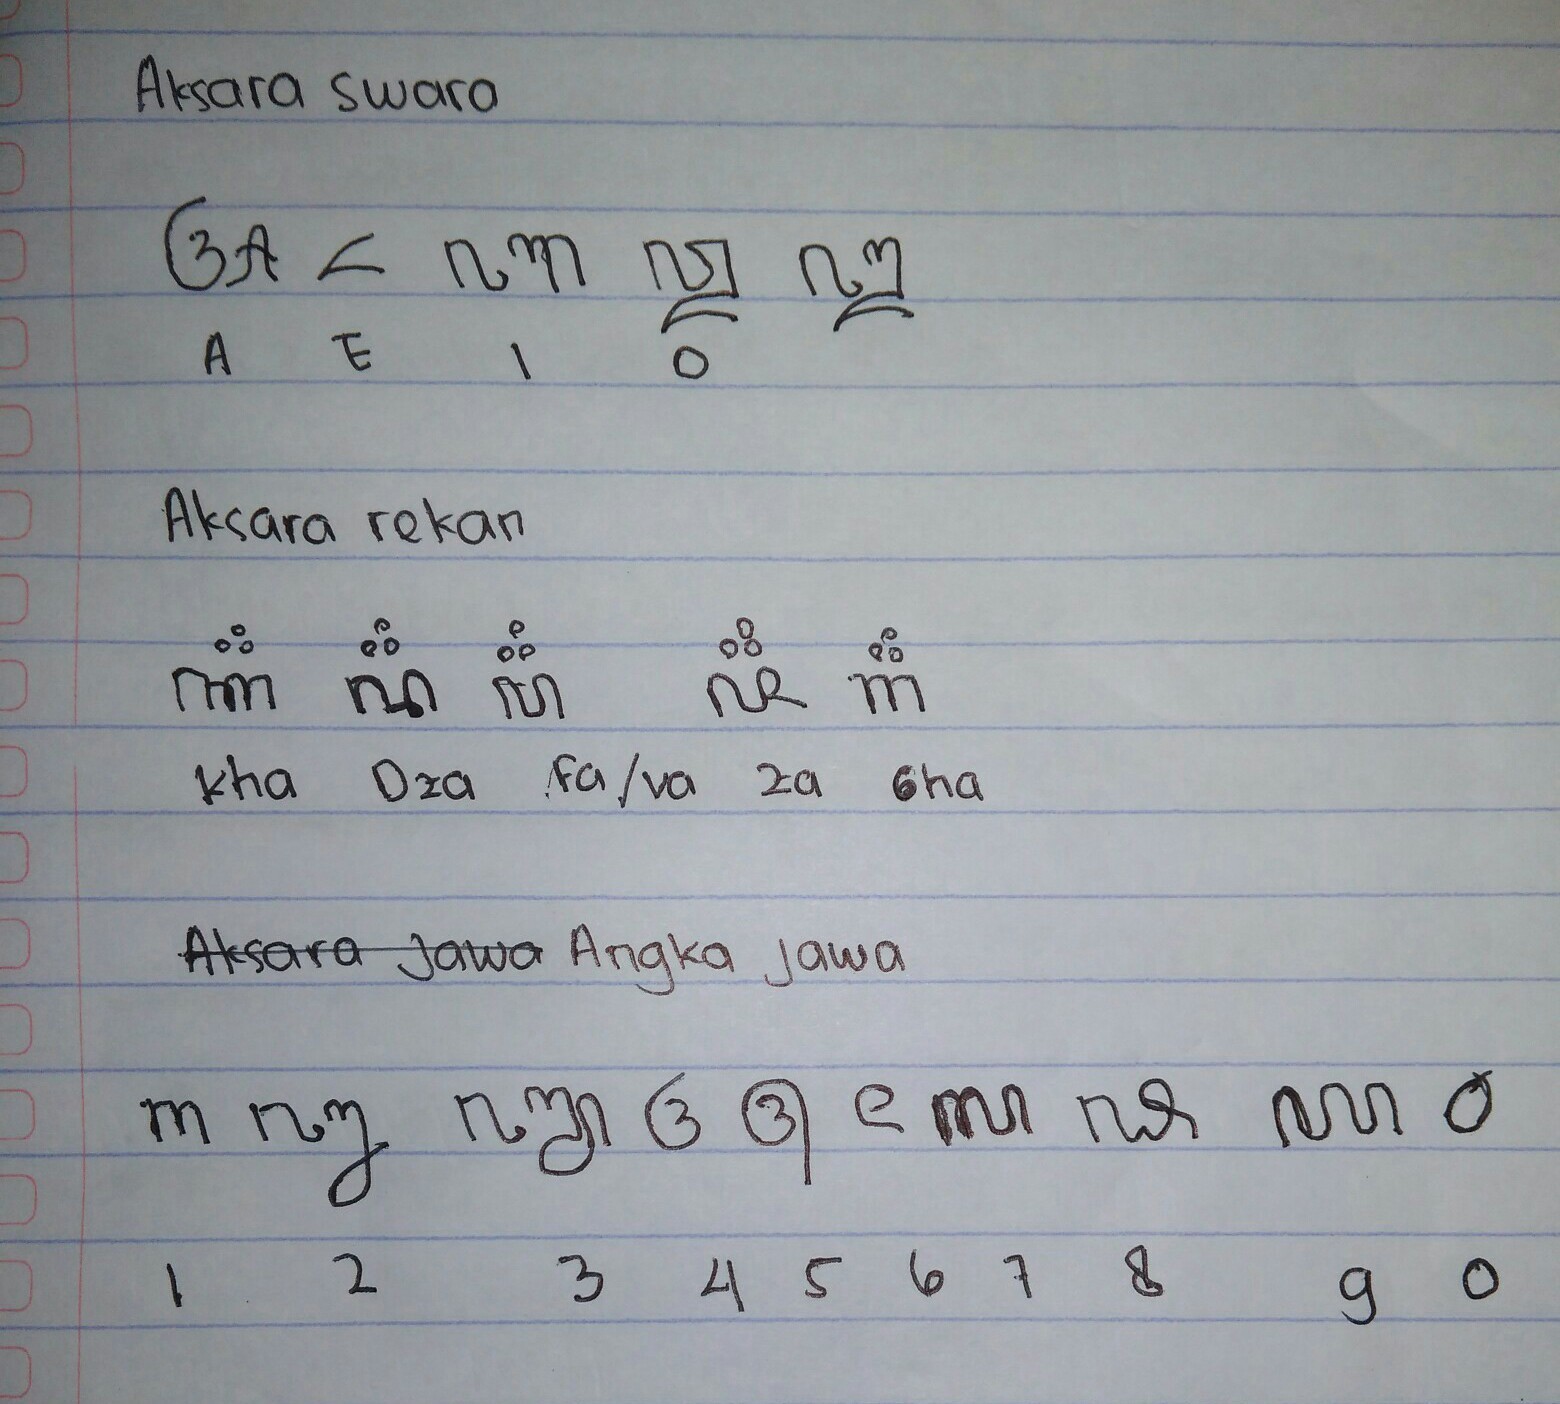 Aksara swara
ꦄ ꦌ ꦆ ꦎ ꦈ
A E I O
Aksara rekan
ꦏ꦳ ꦢ꦳ ꦥ꦳ ꦗ꦳ ꦒ꦳
kha Dza fa/va za Gha
Angka jawa
꧑ ꧒ ꧓ ꧔ ꧕ ꧖ ꧗ ꧘ ꧙ ꧐
1 2 3 4 5 6 7 8 9 0